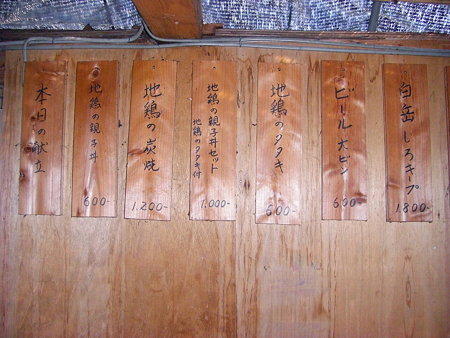 本日の献立
地鶏の親子丼
600-
地鶏の炭焼
1.200-
地鶏の親子丼セット
地鶏のタタキ付
1.000-
地鶏のタタキ
600-
ビール大ビン
600-
白岳しろキープ
1.800-